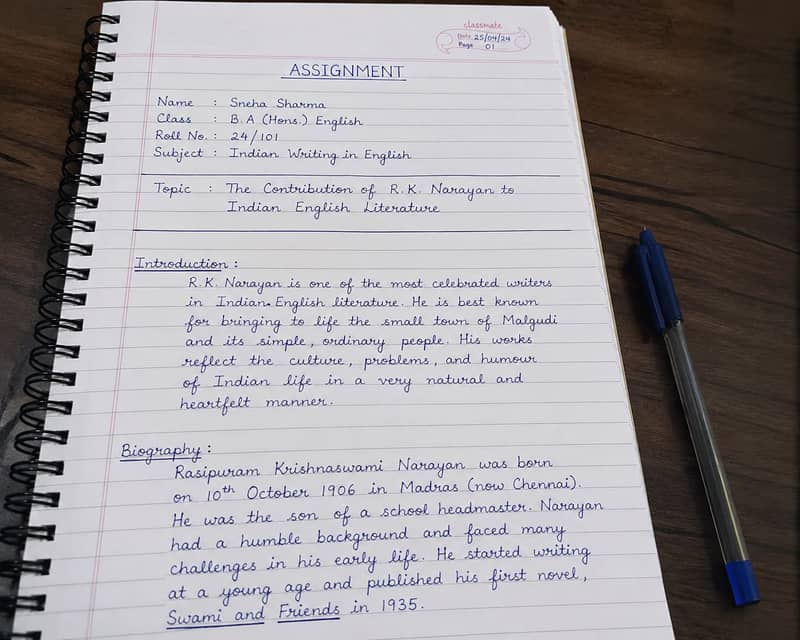 classmate
Date 25/04/24
Page 01
ASSIGNMENT
Name : Sneha Sharma
Class : B.A (Hons.) English
Roll No. : 24/101
Subject : Indian Writing in English
Topic : The Contribution of R.K. Narayan to
Indian English Literature
Introduction :
R.K. Narayan is one of the most celebrated writers
in Indian English literature. He is best known
for bringing to life the small town of Malgudi
and its simple, ordinary people. His works
reflect the culture, problems, and humour
of Indian life in a very natural and
heartfelt manner.
Biography :
Rasipuram Krishnaswami Narayan was born
on 10th October 1906 in Madras (now Chennai).
He was the son of a school headmaster. Narayan
had a humble background and faced many
challenges in his early life. He started writing
at a young age and published his first novel,
Swami and Friends in 1935.